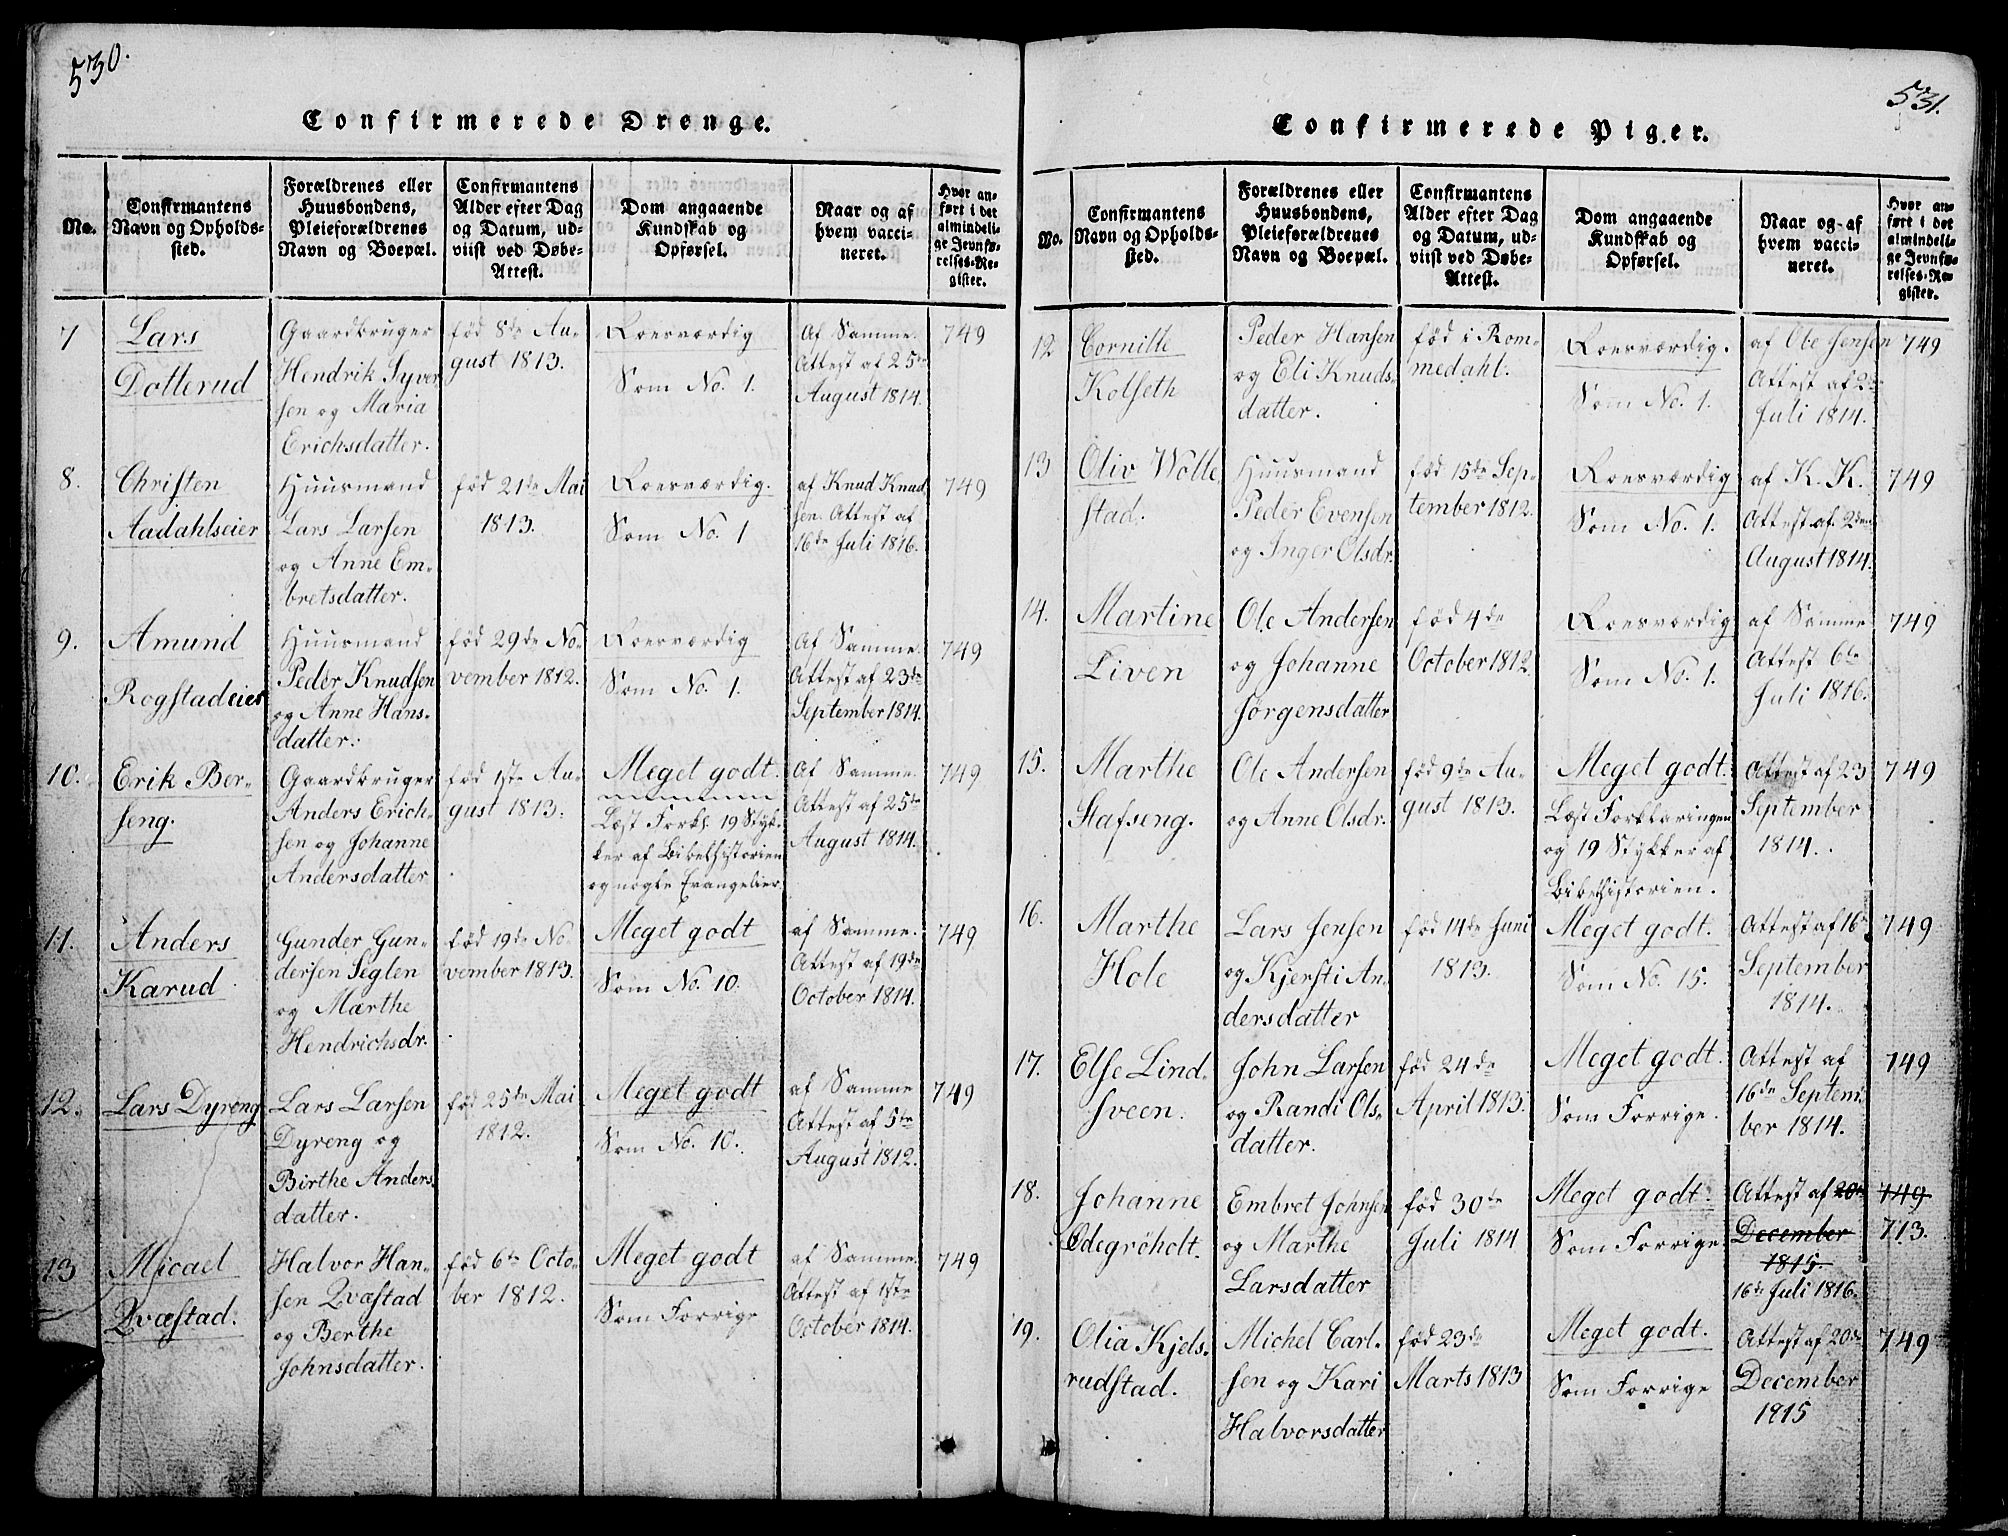 530.
Confirmerede Drenge.
No.
Confirmantens
Navn og Opholds-
sted.
Forældrenes eller
Huusbondens,
Pleieforældrenes
Navn og Boepæl.
Confirmantens
Alder efter Dag
og Datum, ud-
viist ved Døbe-
Attest.
Dom angaaende
Kundskab og
Opførsel.
Naar og af
hvem vacci-
neret.
Hvor an-
ført i det
almindeli-
ge Jevnfø-
relses-Re-
gister.
7
Lars
Dotterud
Gaardbruger
Hendrik Syver
sen og Maria
Erichsdatter.
fød 8de Au-
gust 1813.
Roesværdig
Som No. 1.
Af Samme.
Attest af 25de
August 1814.
749
8.
Christen
Aadahlseier
Huusmand
Lars Larsen
og Anne Em-
bretsdatter.
fød 21de Mai
1813.
Roesværdig.
Som No. 1
af Knud Knud
sen. Attest af
16de Juli 1816.
749
9.
Amund
Rogstadeier
Huusmand
Peder Knudsen
og Anne Hans-
datter.
fød 29de No-
vember 1812.
Roesværdig
Som No. 1.
Af Samme.
Attest af 23de
September 1814.
749
10.
Erik Ber-
seng.
Gaardbruger
Anders Erich-
sen og Johanne
Andersdatter
fød 1ste Au-
gust 1813.
Meget godt.
Læst Forkl. 19 Styk-
ker af Bibelhistorien
og nogle Evangelier.
Af Samme.
Attest af 25de
August 1814.
749
11.
Anders
Karud
Gunder Gun-
dersen Seglen
og Marthe
Hendrichsdr.
fød 19de No-
vember 1813.
Meget godt
Som No. 10.
af Samme.
Attest af 19de
October 1814.
749
12.
Lars Dyreng
Lars Larsen
Dyreng og
Birthe Anders
datter.
fød 25de Mai
1812.
Meget godt
Som No. 10.
af Samme
Attest af 5te
August 1812.
749
13
Micael
Qvæstad.
Halvor Han-
sen Qvæstad
og Berthe
Johnsdatter.
fød 6te Octo-
ber 1812.
Meget godt
Som Forrige
af Samme.
Attest af 1ste
October 1814.
749
531.
Confirmerede Piger.
No.
Confirmantens
Navn og Opholds-
sted.
Forældrenes eller
Huusbondens,
Pleieforældrenes
Navn og Boepæl.
Confirmantens
Alder efter Dag
og Datum, ud-
viist ved Døbe-
Attest.
Dom angaaende
Kundskab og
Opførsel.
Naar og af
hvem vacci-
neret.
Hvor an-
ført i det
almindeli-
ge Jevnfø-
relses-Re-
gister.
12
Cornille
Kolseth
Peder Hansen
og Eli Knuds-
datter.
fød i Rom-
medahl.
Roesværdig.
Som No. 1.
af Ole Jensen
Attest af 2de
Juli 1814.
749
13
Oliv Wolle
stad.
Huusmand
Peder Evensen
og Inger Olsdr.
fød 15de Sep-
tember 1812.
Roesværdig
Som No. 1.
af K. K.
Attest af 2den
August 1814.
749
14.
Martine
Liven
Ole Andersen
og Johanne
Jørgensdatter
fød 4de
October 1812.
Roesværdig
Som No. 1.
af Samme
Attest 6te
Juli 1816.
749
15.
Marthe
Stafseng.
Ole Andersen
og Anne Olsdr.
fød 9de Au-
gust 1813.
Meget godt.
Læst Forklaringen
og 19 Stykker af
Bibelhistorien.
Attest af 23
September
1814.
749
16.
Marthe
Hole
Lars Jensen
og Kjersti An-
dersdatter
fød 14de Juni
1813.
Meget godt.
Som No. 15.
Attest af 16
September
1814.
749
17.
Else Lind-
sveen.
John Larsen
og Randi Ols-
datter.
fød 24de
April 1813.
Meget godt.
Som Forrige.
Attest af
16de Septem-
ber 1814.
749
18.
Johanne
Ødegrøholt.
Embret Johnsen
og Marthe
Larsdatter
fød 30te
Juli 1814
Meget godt.
Som Forrige
Attest af 20de
December
1815.
16de Juli 1816.
749
713.
19.
Olia Kjels-
rudstad.
Michel Carl-
sen og Kari
Halvorsdatter
fød 23de
Marts 1813
Meget godt.
Som Forrige
Attest af 20de
December
1815
749